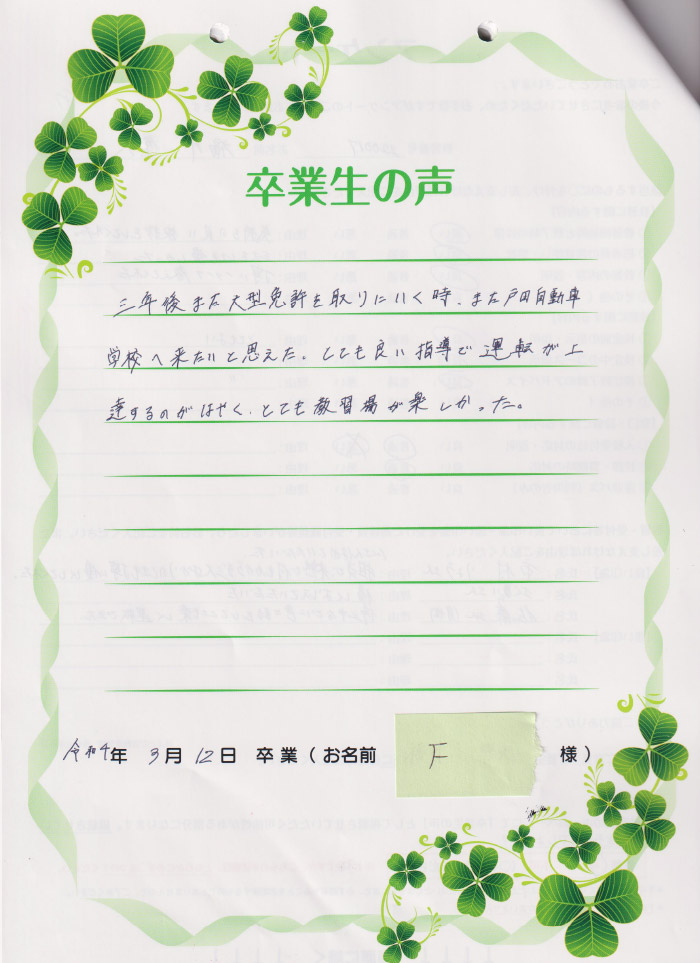 卒業生の声
三年後また大型免許を取りにいく時、また戸田自動車
学校へ来たいと思えた。とても良い指導で運転が上
達するのがはやく、とても教習場が楽しかった。
令和4年 3月 12日 卒業(お名前 F 様)